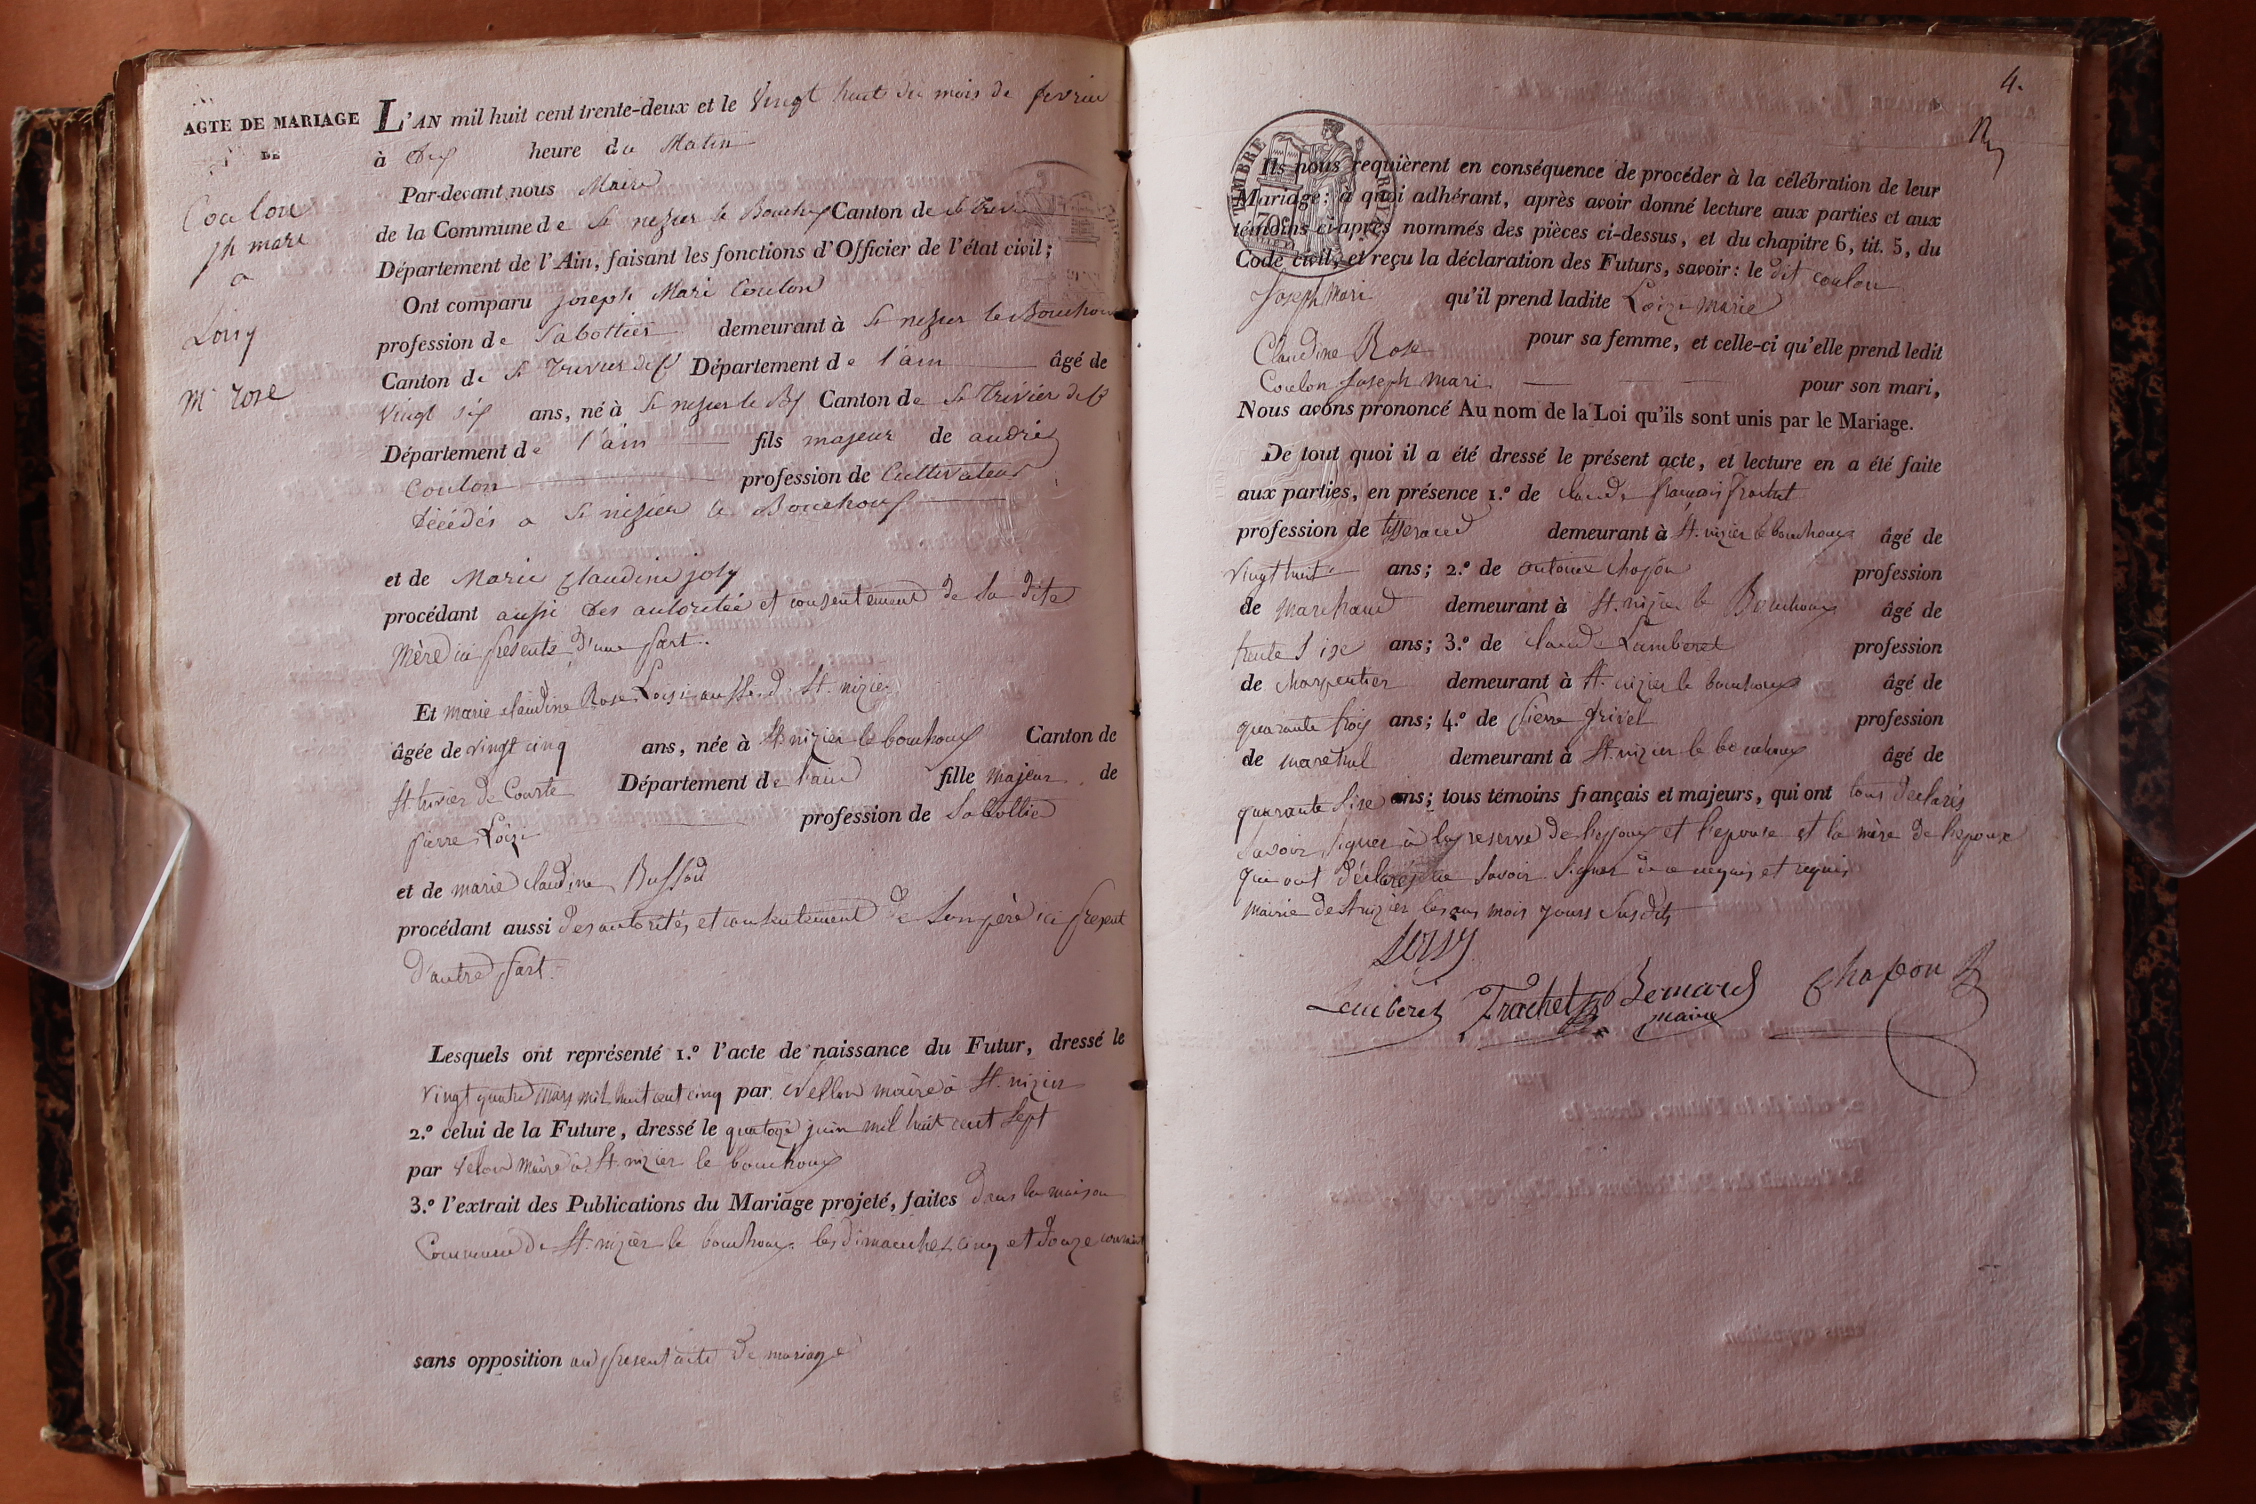 ACTE DE MARIAGE
DE
Coulon
Jh mari
a
Loisy
Mie rose
L'AN mil huit cent trente-deux et le vingt huit du mois de fevrier
à dix heure du Matin
Par-devant nous Maire
de la Commune de St nizier le Bouchoux Canton de St Trivier
Département de l'Ain, faisant les fonctions d'Officier de l'état civil;
Ont comparu joseph Mari Coulon
profession de Sabottier demeurant à St nizier le Bouchoux
Canton de St Trivier de C Département de l'ain âgé de
vingt six ans, né à St nizier le Bx Canton de St Trivier de C
Département de l'ain fils majeur de andré
Coulon profession de Cultivateur
décédés a St nizier le Bouchoux
et de Marie Claudine joly
procédant aussi des autoritée et consentement de la dite
Mère ici présente d'une part.
Et marie claudine Rose Loisi aussi de St. nizier
âgée de vingt cinq ans, née à St nizier le bouchoux Canton de
St. trivier de Courte Département de l'ain fille majeur de
pierre Loizi profession de Sabottié
et de marie claudine Buffod
procédant aussi des autorités et consentement de Son père ici present
d'autre part.
Lesquels ont représenté 1.º l'acte de naissance du Futur, dressé le
vingt quatre mars mil huit cent cinq par vellon maire à St. nizier
2.º celui de la Future, dressé le quatoze juin mil huit cent sept
par velon Maire à St. nizier le bouchoux
3.º l'extrait des Publications du Mariage projeté, faites dans la maison
Commune de St. nizier le bouchoux les dimanches cinq et douze courant
sans opposition au present acte de mariage
4.
TIMBRE ROYAL
70c
Ils nous requièrent en conséquence de procéder à la célébration de leur
Mariage: à quoi adhérant, après avoir donné lecture aux parties et aux
témoins ci-après nommés des pièces ci-dessus, et du chapitre 6, tit. 5, du
Code civil, et reçu la déclaration des Futurs, savoir: le dit coulon
Joseph Mari qu'il prend ladite Loize Marie
Claudine Rose pour sa femme, et celle-ci qu'elle prend ledit
Coulon Joseph Mari pour son mari,
Nous avons prononcé Au nom de la Loi qu'ils sont unis par le Mariage.
De tout quoi il a été dressé le présent acte, et lecture en a été faite
aux parties, en présence 1.º de claude françois frachet
profession de tisserand demeurant à St. nizier le bouchoux âgé de
vingt huit ans; 2.º de antoine chapon profession
de Marchand demeurant à St. nizier le Bouchoux âgé de
trente Size ans; 3.º de claude Lamberet profession
de charpentier demeurant à St. nizier le bouchoux âgé de
quarante trois ans; 4.º de pierre grivel profession
de marechal demeurant à St. nizier le bouchoux âgé de
quarante Size ans; tous témoins français et majeurs, qui ont tous declarés
savoir signer à la reserve de l'epoux et l'epouse et la mère de l'epoux
qui ont déclarés ne savoir signer de ce enquis et requis
mairie de St nizier les ans mois jours susdits
Loisy
Lamberet Frachet Bernard Chapon
maire